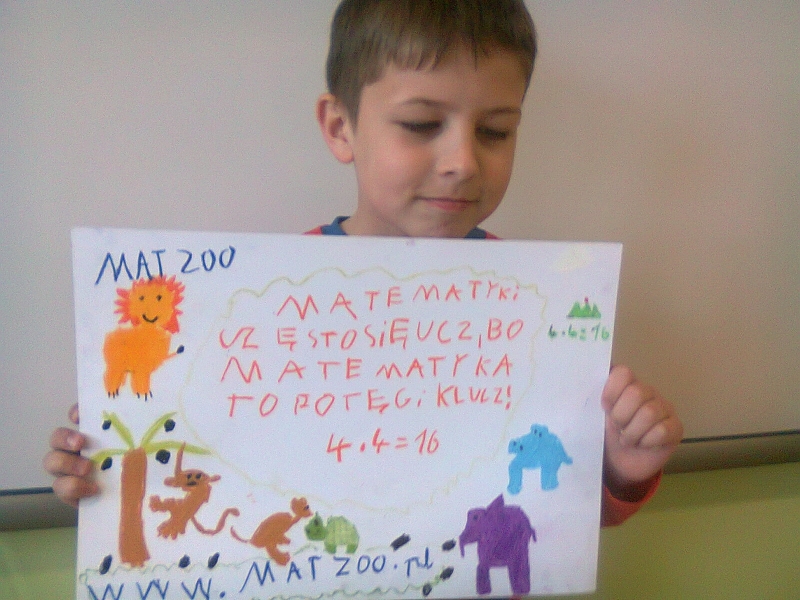 MAT ZOO
MATEMATYKI
CZĘSTO SIĘ UCZ, BO
MATEMATYKA
TO POTĘGI KLUCZ!
4·4=16
4·4=16
WWW.MATZOO.PL